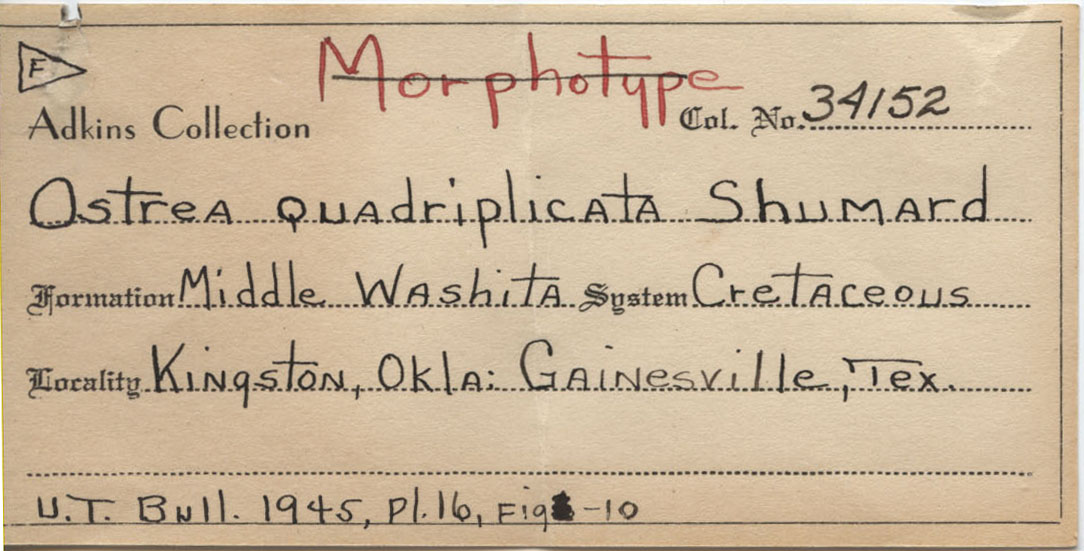 F
Morphotype
Adkins Collection Col. No. 34152
Ostrea quadriplicata Shumard
Formation Middle Washita System Cretaceous
Locality Kingston, Okla: Gainesville, Tex.
U.T. Bull. 1945, Pl. 16, Fig -10